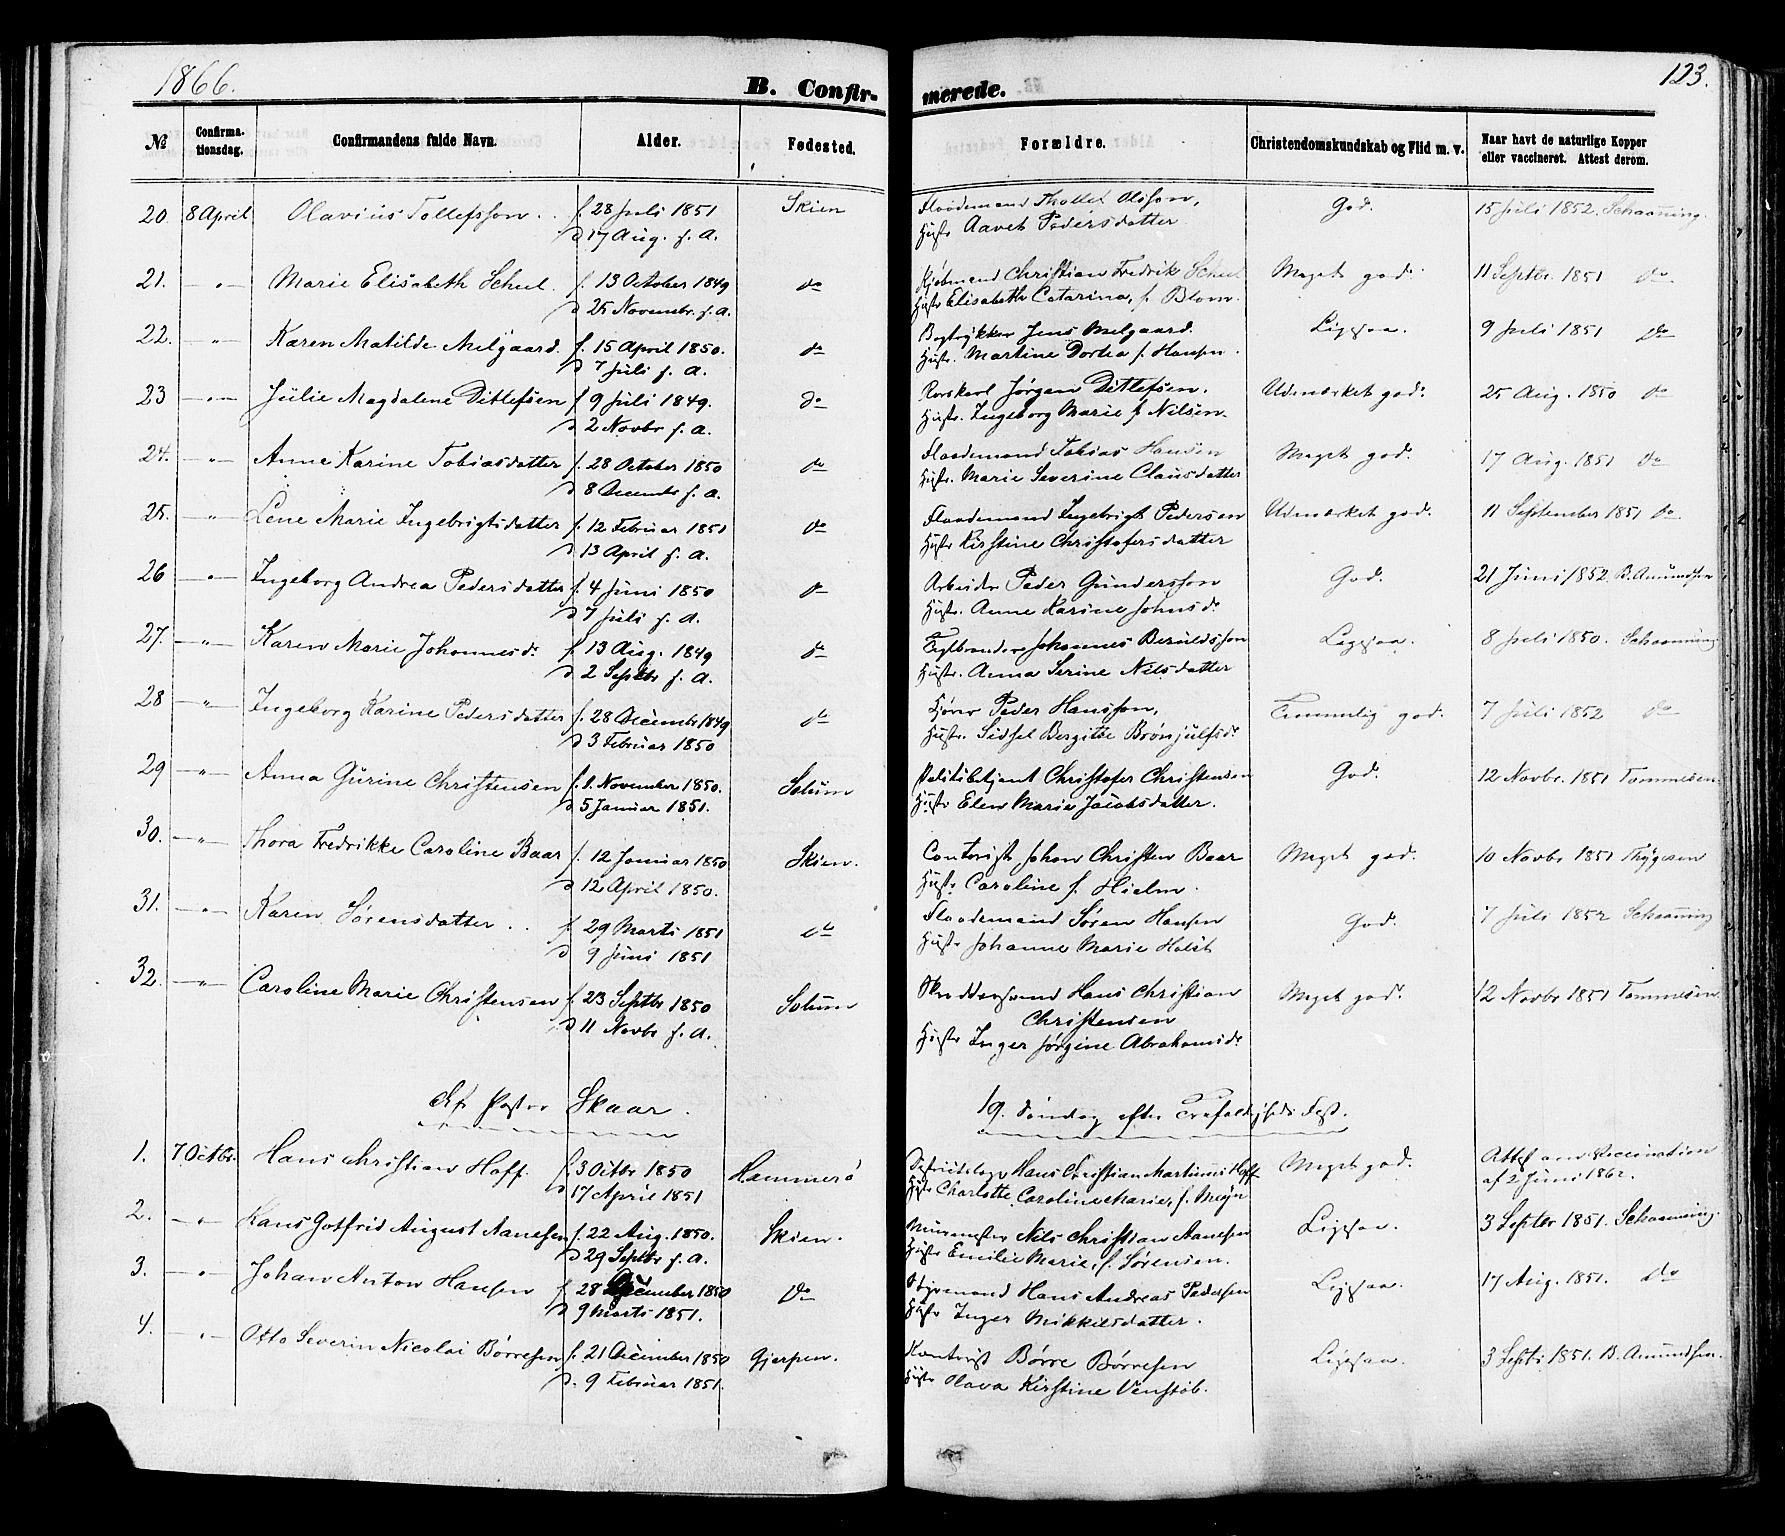 1866.
B. Confir-
merede.
123.
№ Confirma-tionsdag. Confirmandens fulde Navn. Alder. Fødested. Forældre. Christendomskundskab og Flid m. v. Naar havt de naturlige Kopper eller vaccineret. Attest derom.
20. 8 April Olavius Tollefsson f. 28 Juli 1851 Skien Flaademand Thollef Olsson, God. 15 Juli 1852. Schaaning.
d 17 Aug. s. A. Hustr Aavet Pedersdatter
21. —"— Marie Elisabeth Scheel. f. 13 October 1849 do Kjøbmand Christian Fredrik Scheel Meget god. 11 Septbr. 1851 do
d 25 Novembr. s. A. Hustr Elisabeth Catarina, f. Blom.
22. —"— Karen Matilde Melgaard. f. 15 April 1850. do Bogtrykker Jens Melgaard. Ligesaa. 9 Juli 1851 do
d 7 Juli s. A. Hustr. Martine Dortea f. Hansen.
23 —"— Julie Magdalene Ditlefsen f 9 Juli 1849. do Rorskarl Jørgen Ditlefsen. Udmærket god. 25 Aug. 1850 do
d 2 Novbr s. A. Hustr. Ingeborg Marie f Nilsen
24. —"— Anne Karine Tobiasdatter f. 28 October 1850 do Flaademand Tobias Hansen Meget god. 17 Aug. 1851 do
d 8 Decembr s. A. Hustr. Marie Severine Clausdatter
25. —"— Lene Marie Ingebrigtsdatter f. 12 Februar 1851 do Flaademand Ingebrigt Pedersen Udmærket god. 11 September 1851 do
d 13 April s. A. Hustr Kirstine Christofersdatter
26 —"— Ingeborg Andrea Pedersdatter f. 4 Juni 1850 do Arbeider Peder Gundersson God. 21 Juni 1852. B. Amundsen
d 7 Juli s. A. Hustr. Anne Karine Johnsd.
27. —"— Karen Marie Johannesd. f 13 Aug. 1849 do Teglbrænder Johannes Beruldsson Ligesaa. 8 Juli 1850. Schaaning
d 2 Septbr s. A. Hustr. Anna Serine Nilsdatter
28 —"— Ingeborg Karine Pedersdatter f. 28 Decembr 1849 do Peder Hansson, Temmelig god. 7 Juli 1852 do
d 3 Februar 1850 Hustr. Sidsel Bergitte Brønjulfsd.
29 —"— Anna Gurine Christensen f. 1. November 1850. Solum Politibetjent Christofer Christensen God. 12 Novbr. 1851 Tommesen
d 5 Januar 1851. Hustr Elen Marie Jacobsdatter.
30. —"— Thora Fredrikke Caroline Baar f. 12 Januar 1850 Skien. Contorist Johan Christen Baar Meget god. 10 Novbr 1851 Thygesen
d 12 April 1850. Hustr Caroline f. Hielm.
31. —"— Karen Sørensdatter f. 29 Marts 1851 do Flaademand Søren Hansen God. 7 Juli 1852 Schaaning
d 9 Juni 1851 Hustr Johanne Marie Holst
32. —"— Caroline Marie Christensen f. 23 Septbr 1850 Solum Skræddersvend Hans Christian Meget god. 12 Novbr 1851 Tommesen
Christensen
d 11 Novbr s. A. Hustr Inger Jørgine Abrahamsd.
Af Pastor Skaar. 19. Søndag efter Trefoldigheds Fest.
1. 7 Octbr. Hans Christian Hoff. f. 3 Octbr 1850 Hammerø Districtslæge Hans Christian Martinus Hoff Meget god. Attest om Vaccination
d 17 April 1851 Hustr Charlotte Caroline Marie, f. Meyn af 2 Juni 1862.
2. —"— Hans Gotfrid August Aanesen f. 22 Aug. 1850. Skien. Muurmester Nils Christian Aanesen Ligesaa. 3 Septbr 1851. Schaaning.
d 29 Septbr s. A. Hustr Emilie Marie, f. Sørensen.
3. —"— Johan Anton Hansen f. 28 December 1850 do Hans Andreas Pedersen Ligesaa. 17 Aug. 1851. do
d 9 Marts 1851. Hustr Inger Mikkelsdatter.
4. —"— Otto Severin Nicolai Børresen f. 21 December 1850 Gjerpen. Kontorist Børre Børresen Ligesaa. 3 Septb. 1851. B. Amundsen.
d. 9 Februar 1851. Hustr Olava Kirstine Venstøb.